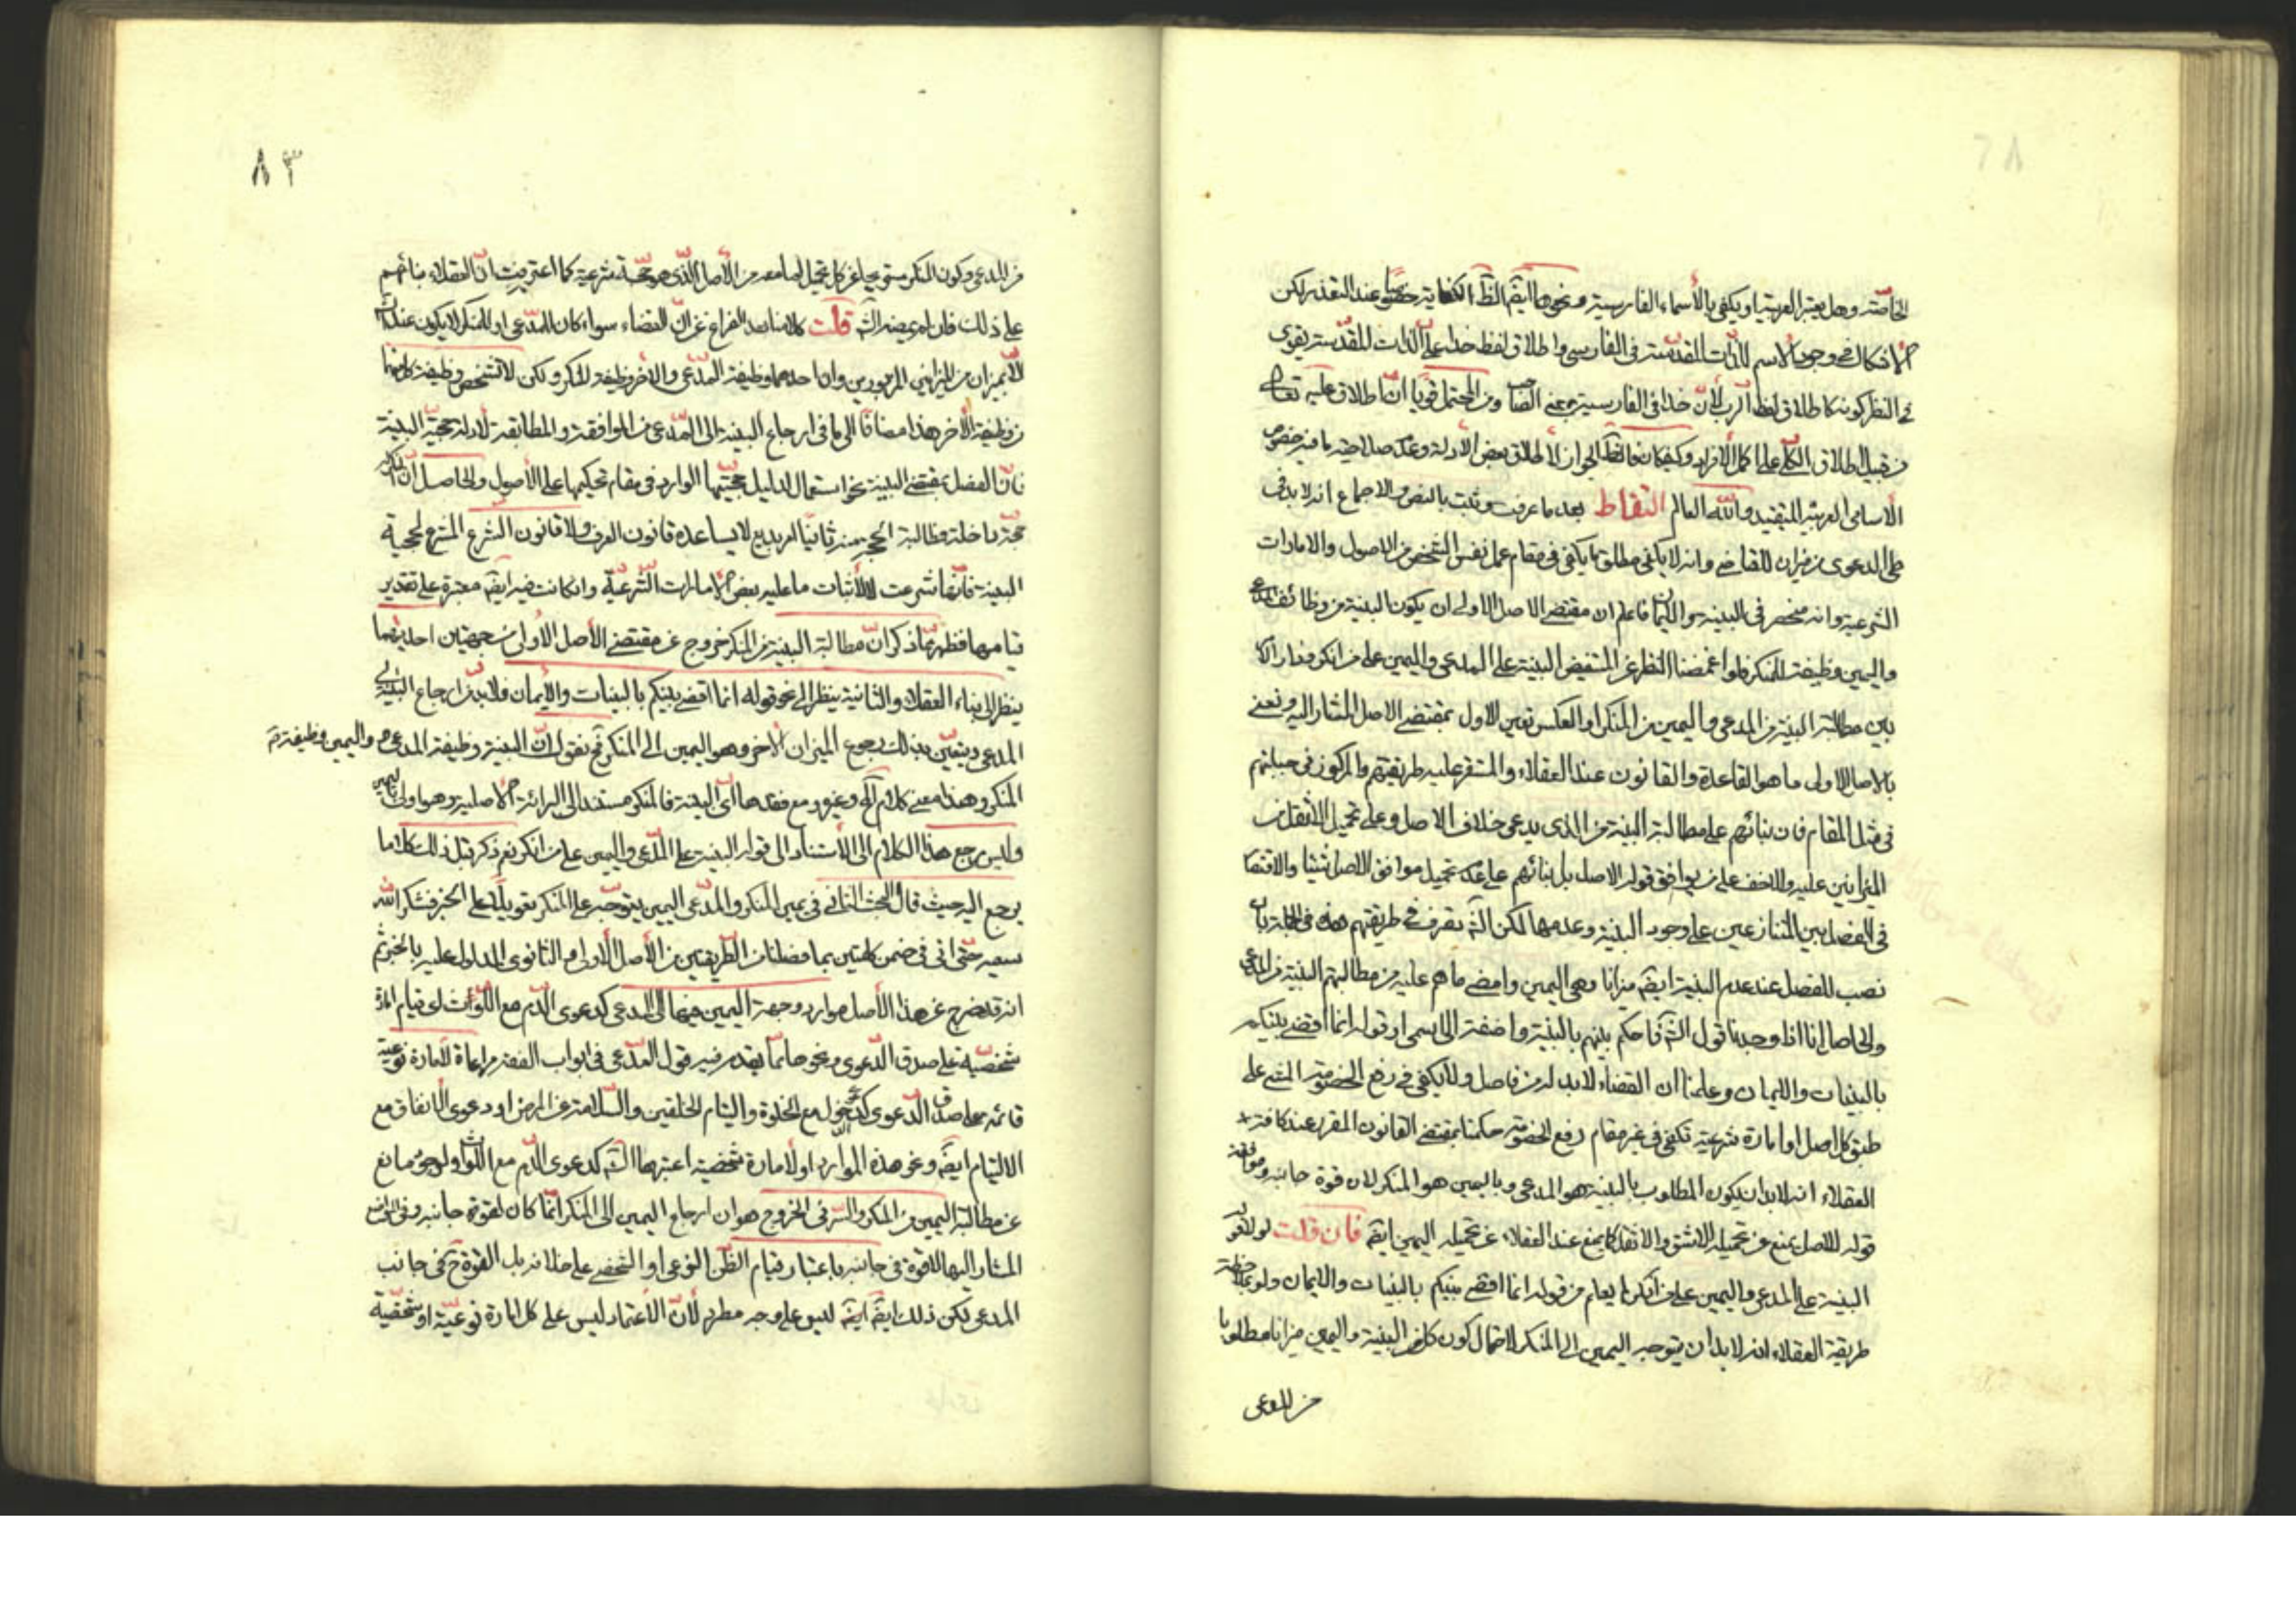 الخاصّة وهل يعتبر العربية او يكفي بالأسماء الفارسية ونحوها ايضا الظ الكفاية خصوصا عند التعذر لكن
الاشكال في وجود الاسم للذات المقدسة في الفارسي واطلاق لفظ خدا على الذات المقدسة يقوى
في النظر كونه كاطلاق لفظ الرب لأنّ خدا في الفارسية بمعنى الصاحب ومن المحتمل قويا انّ اطلاقه عليه تعالى
من قبيل اطلاق الكلّي على اكمل الافراد وكيف كان فالظ الجواز لاطلاق بعض الأدلة وعدم صلاحية ما فيه خصوص
الأسامي العربية للتقييد والله العالم التقاط بعد ما عرفت وثبت بالنص والاجماع انه لا بد في
طي الدعوى من ميزان للقاضي وانه لا يكفي مطلق ما يكفي في مقام عمل نفس الشخص من الاصول والامارات
الشرعية وانه منحصر في البينة والايمان فاعلم ان مقتضى الاصل الاولى ان يكون البينة من وظائف المدعي
واليمين وظيفة للمنكر فلو اغمضنا النظر عن المستفيض البينة على المدعي واليمين على من انكر ودار الامر
بين مطالبة البينة من المدعي واليمين من المنكر او العكس تعين الاول بمقتضى الاصل المشار اليه ونعني
بالاصل الاولى ما هو القاعدة والقانون عند العقلاء والمستقر عليه طريقتهم والمركوز في جبلتهم
في مثل المقام فان بنائهم على مطالبة البينة من الذي يدعى خلاف الاصل وعلى تحميل الاثقل من
الميزانين عليه والاخف على من يوافق قوله الاصل بل بنائهم على عدم تحميل موافق الاصل شيئا والاقتصار
في الفصل بين المتنازعين على وجود البينة وعدمها لكن الش تصرف في طريقتهم هذه في الجملة بان
نصب للفصل عند عدم البينة ايضا ميزانا وهي اليمين وامضى ما هم عليه من مطالبتهم البينة من المدعي
والحاصل انا اذا وجدنا قول الش فاحكم بينهم بالبينة واضفهم الى اسمى او قوله انما اقضي بينكم
بالبينات والايمان وعلمنا ان القضاء لابد له من فاصل ولا يكفي في رفع الخصومة المشي على
طبق كل اصل او امارة شرعية تكفي في غير مقام رفع الخصومة حكمنا بمقتضى القانون المقرر عند كافة
العقلاء انه لابد ان يكون المطلوب بالبينة هو المدعي وباليمين هو المنكر لان قوة جانبه وموافقة
قوله للاصل يمنع عن تحميله الاشق والاثقل كما يمنع عند العقلاء عن تحميله اليمين ايضا فان قلت لولا قوله
البينة على المدعي واليمين على من انكر لم يعلم من قوله انما اقضي بينكم بالبينات والايمان ولو بملاحظة
طريقة العقلاء انه لابد ان يتوجه اليمين الى المنكر لاحتمال كون كل من البينة واليمين ميزانا مطلوبا
من المدعي
٨٣
من المدعي وكون المنكر مستريحا عن كل تحميل لما معه من الأصل الّذي هو حجّة شرعية كما اعترفت انّ العقلاء بنائهم
على ذلك فان لم يمضه الش قلت كلامنا بعد الفراغ عن انّ القضاء سواء كان للمدّعي او للمنكر لا يكون عند الش
الّا بميزان من الميزانين المزبورين وان احدهما وظيفة المدّعي والأخر وظيفة المنكر ولكن لا تشخص وظيفة كل منهما
من وظيفة الأخر هذا مضافا الى ما في ارجاع البينة الى المدّعي من الموافقة والمطابقة لأدلة حجيّة البينة
فانّ الفصل بمقتضى البينة نحو استعمال لدليل حجيّتها الوارد في مقام تحكيمها على الأصول والحاصل أنّ المنكر
حجّة داخلة ومطالبة الحجّة منه ثانيا امر بديع لا يساعده قانون العرف ولا قانون الشرع المشرع لحجية
البينة فانّها شرعت للاثبات ما عليه بعض الامارات الشّرعيّة وان كانت فيه ايضا معتبرة على تقدير
قيامها فظهر ممّا ذكر انّ مطالبة البينة من المنكر خروج عن مقتضى الأصل الأولى من جهتين احديهما
ينظر الى بناء العقلاء والثانية ينظر الى نحو قوله انما اقضي بينكم بالبينات والأيمان فلابد من ارجاع البيّنة الى
المدعي ويتعيّن بذلك رجوع الميزان الأخر وهو اليمين الى المنكر ثم نقول انّ البينة وظيفة المدعي واليمين وظيفة
المنكر وهذا معنى كلام له وغيره مع فقدها اى البينة فالمنكر مستند الى البرائة الاصلية وهو اولى باليمين
وليس يرجع هذا الكلام الى الأستناد الى قوله البينة على المدّعي واليمين على من انكر نعم ذكر قبل ذلك كلاما
يرجع اليه حيث قال البحث الثاني في يمين المنكر والمدّعي اليمين يتوجّه على المنكر تعويلا على الخبر فشكر الله
سعيه حتّى اتى في ضمن كلمتين بما فصلنا من الطّريقتين من الأصل الأولى والثانوى المدلول عليه بالخبر ثم
انه قد خرج عن هذا الأصل موارد وجهة اليمين فيها الى المدعي كدعوى الدّم مع اللّوث لو قيام امارة
شخصيّة على صدق الدّعوى ونحوها ممّا يقدم فيه قول المدّعي في ابواب الفقه مراعاة لأمارة نوعيّة
قائمة على صدق الدّعوى كدعوى الدخول مع الخلوة والتيام الحلقين والسّلامة عن المرض او دعوى الانفاق مع
الالتيام ايضا ونحو هذه الموارد او لأمارة شخصية اعتبرها الش كدعوى الدّم مع اللّوث او لوجود مانع
عن مطالبة اليمين من المنكر والسّر في الخروج هو ان ارجاع اليمين الى المنكر انّما كان لقوة جانبه
المشار اليها لا قوة في جانبه باعتبار قيام الظّن النوعي او الشخصي على خلافه بل القوة ح في جانب
المدعي لكن ذلك ايضا ليس على وجه مطرد لأنّ الأعتماد ليس على كل امارة نوعيّة او شخصيّة